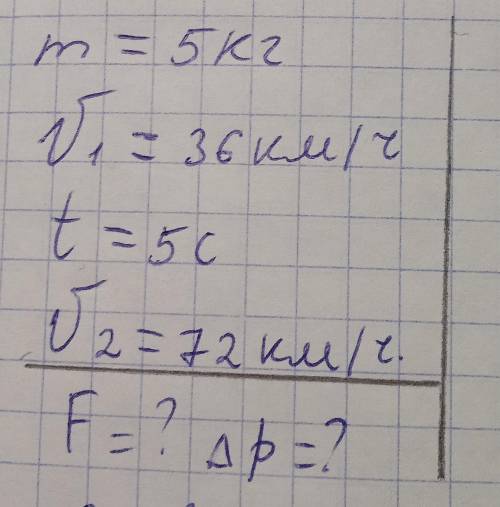 m = 5кг
V₁ = 36 км/ч
t = 5с
V₂ = 72 км/ч.
F = ? Δp = ?